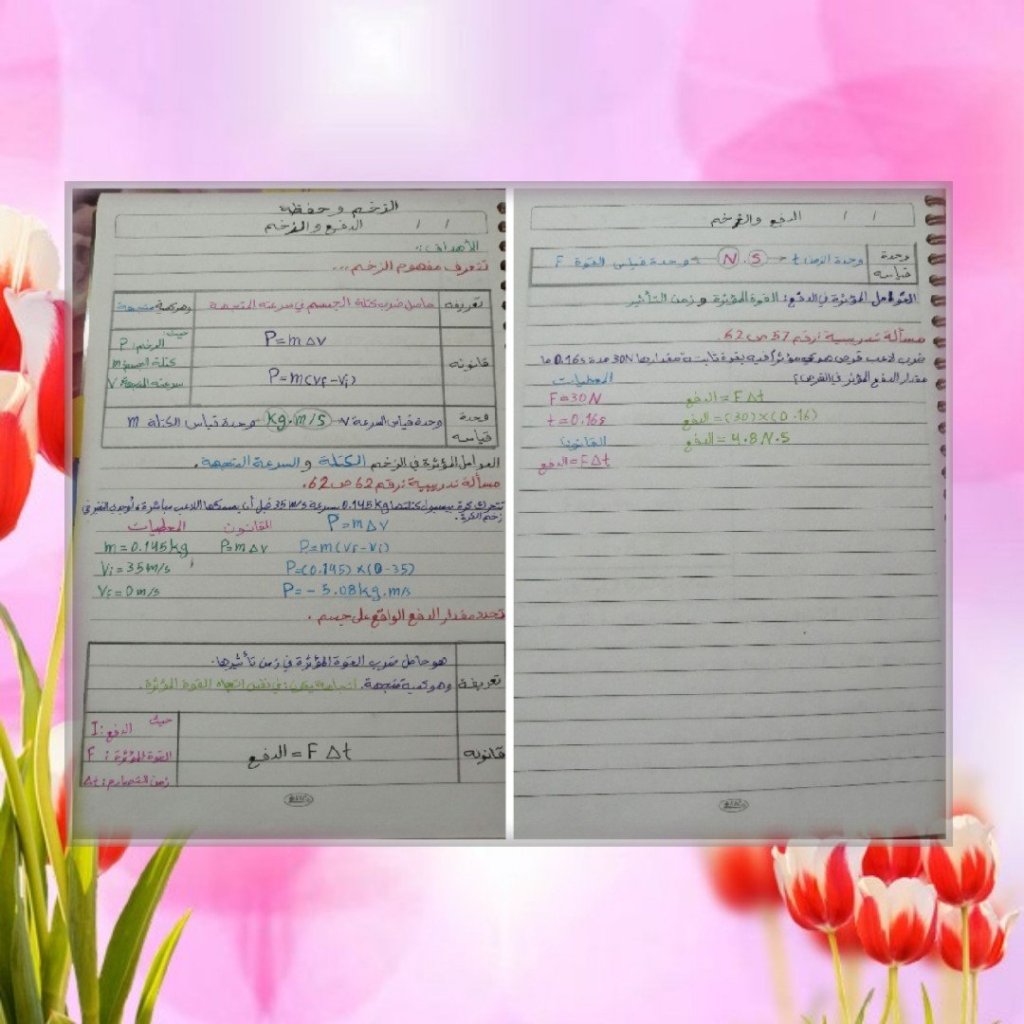 الزخم وحفظه
الدفع والزخم / /
الأهداف:
تتعرف مفهوم الزخم...
تعريفه حاصل ضرب كتلة الجسم في سرعته المتجهة وهو كمية متجهة
قانونه P=m∆v
P=m(vf-vi)
حيث
الزخم: P
كتلة الجسم: m
سرعته المتجهة: V
وحدة قياسه وحدة قياس السرعة v kg.m/s وحدة قياس الكتلة m
العوامل المؤثرة في الزخم الكتلة و السرعة المتجهة.
مسألة تدريبية رقم 62 ص 62.
تتحرك كرة بيسبول كتلتها 0.145kg بسرعة 35m/s قبل أن يمسكها اللاعب مباشرة، أوجد التغير في
زخم الكرة.
المعطيات القانون P=m∆v
m=0.145kg P=m∆v P=m(vf-vi)
Vi=35m/s P=(0.145)×(0-35)
Vf=0m/s P=-5.08kg.m/s
تحدد مقدار الدفع الواقع على جسم.
تعريفه هو حاصل ضرب القوة المؤثرة في زمن تأثيرها.
وهو كمية متجهة. اتجاهه يكون: في نفس اتجاه القوة المؤثرة.
قانونه الدفع = F ∆t
حيث
الدفع: I
القوة المؤثرة: F
زمن التصادم: ∆t
الدفع والزخم / /
وحدة قياسه وحدة الزمن t ← N.S → وحدة قياس القوة F
العوامل المؤثرة في الدفع: القوة المؤثرة وزمن التأثير
مسألة تدريبية رقم 57 ص 62
ضرب لاعب قرص هوكي مؤثراً فيه بقوة ثابتة مقدارها 30N مدة 0.16s ما
مقدار الدفع المؤثر في القرص؟
المعطيات
F=30N الدفع = F∆t
t=0.16s الدفع = (30)×(0.16)
القانون الدفع = 4.8N.S
الدفع = F∆t